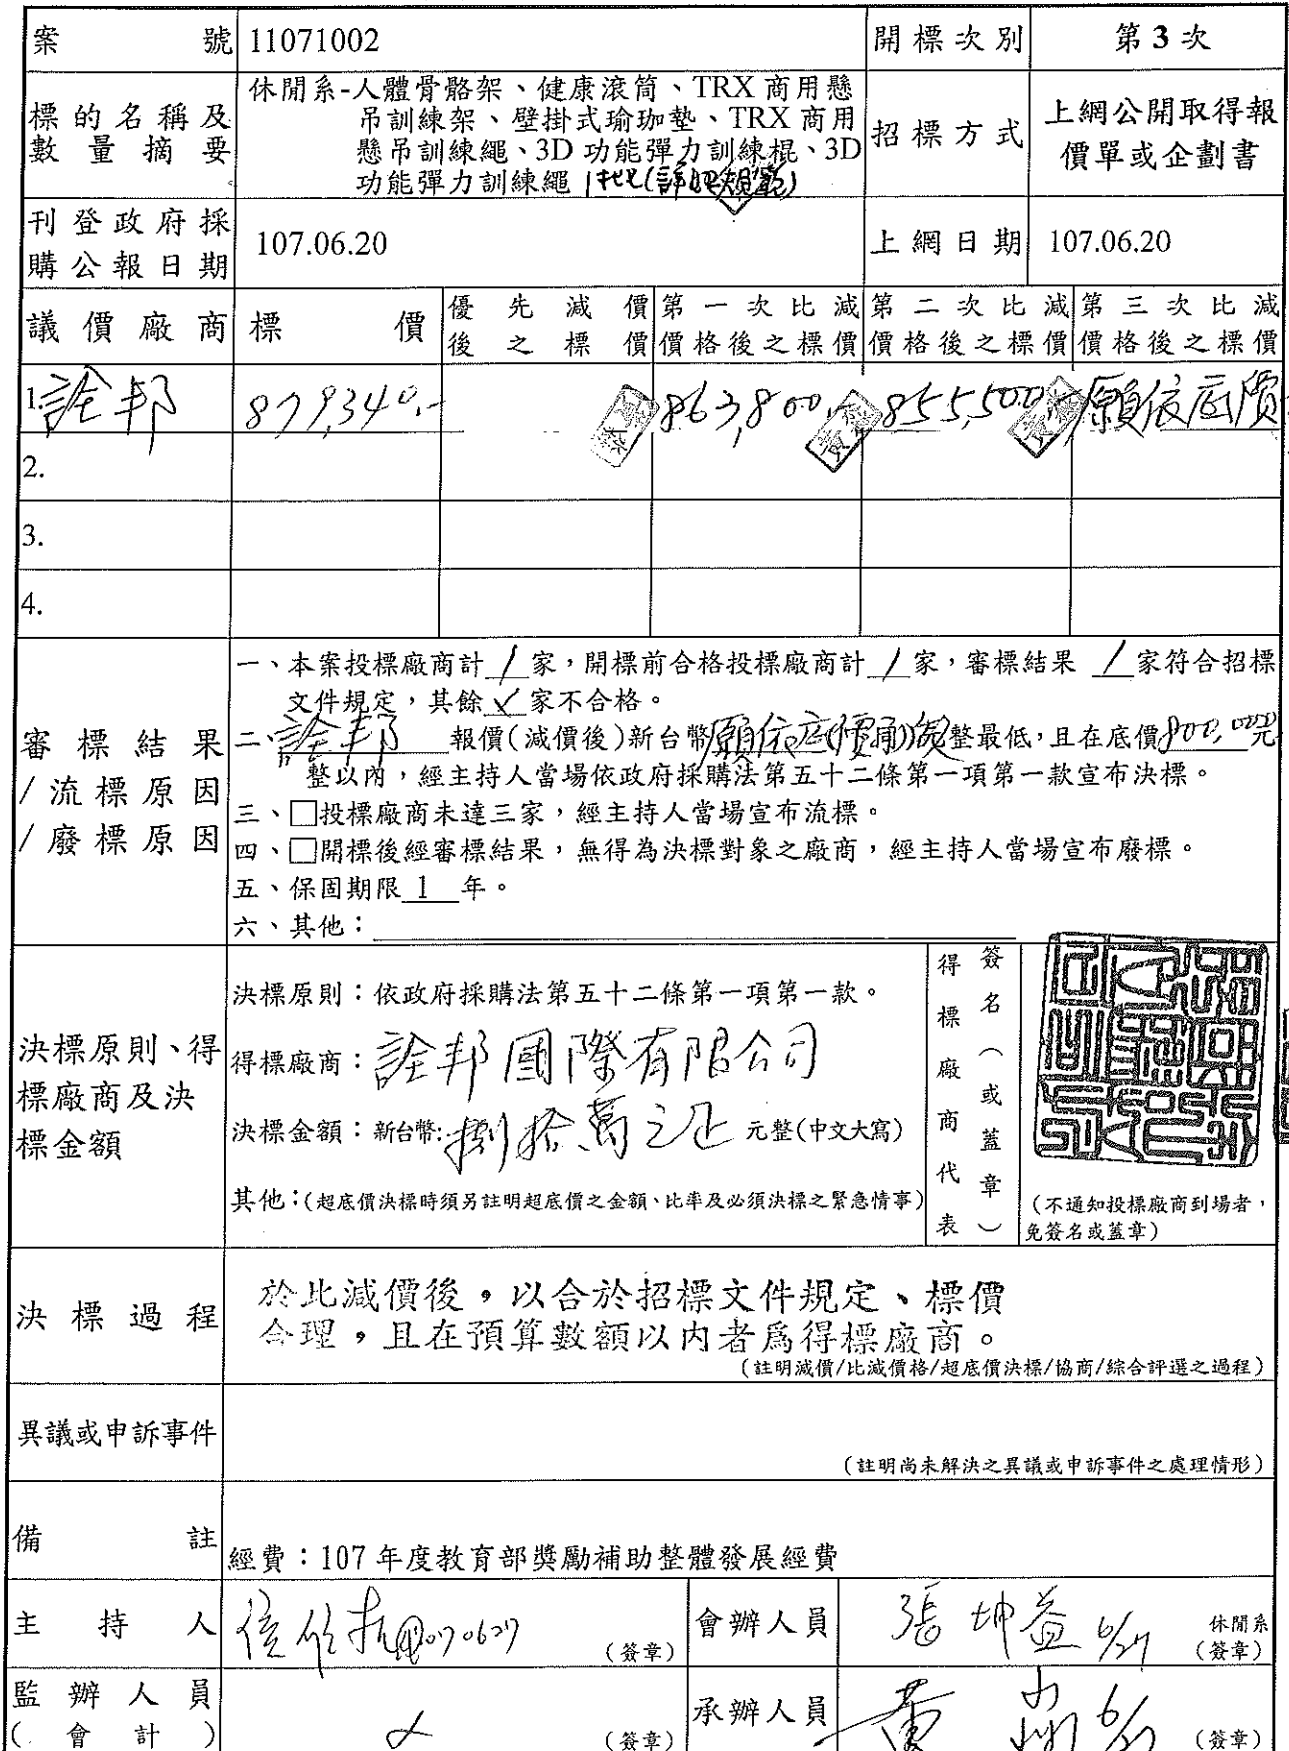 案號 11071002 開標次別 第3次
標的名稱及數量摘要
休閒系-人體骨骼架、健康滾筒、TRX 商用懸
吊訓練架、壁掛式瑜珈墊、TRX 商用
懸吊訓練繩、3D 功能彈力訓練棍、3D
功能彈力訓練繩 1批(詳如規範)
招標方式
上網公開取得報
價單或企劃書
刊登政府採
購公報日期
107.06.20
上網日期 107.06.20
議價廠商 標價
優先減價
後之標價
第一次比減
價格後之標價
第二次比減
價格後之標價
第三次比減
價格後之標價
1.詮邦 879,340.- 863,800.- 855,500.- 願依底價
2.
3.
4.
審標結果
/流標原因
/廢標原因
一、本案投標廠商計 1 家,開標前合格投標廠商計 1 家,審標結果 1 家符合招標
文件規定,其餘 家不合格。
二、詮邦 報價(減價後)新台幣願依底價 整最低,且在底價800,000元
整以內,經主持人當場依政府採購法第五十二條第一項第一款宣布決標。
三、□投標廠商未達三家,經主持人當場宣布流標。
四、□開標後經審標結果,無得為決標對象之廠商,經主持人當場宣布廢標。
五、保固期限 1 年。
六、其他:
決標原則、得
標廠商及決
標金額
決標原則:依政府採購法第五十二條第一項第一款。
得標廠商:詮邦國際有限公司
決標金額:新台幣:捌拾萬之正 元整(中文大寫)
其他:(超底價決標時須另註明超底價之金額、比率及必須決標之緊急情事)
得標廠商代表
簽名(或蓋章)
(不通知投標廠商到場者,
免簽名或蓋章)
決標過程
於比減價後,以合於招標文件規定、標價
合理,且在預算數額以內者為得標廠商。
(註明減價/比減價格/超底價決標/協商/綜合評選之過程)
異議或申訴事件
(註明尚未解決之異議或申訴事件之處理情形)
備註
經費:107 年度教育部獎勵補助整體發展經費
主持人 1070627 (簽章)
會辦人員 張坤益 6/27 休閒系
(簽章)
監辦人員
(會計)
(簽章)
承辦人員 黃 (簽章)